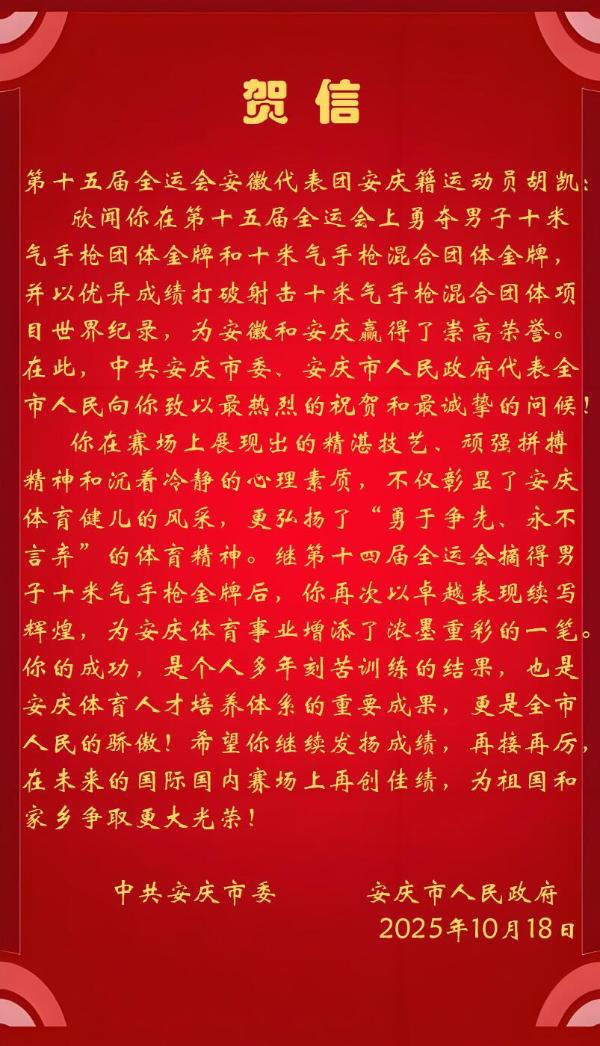 贺信
第十五届全运会安徽代表团安庆籍运动员胡凯：
欣闻你在第十五届全运会上勇夺男子十米
气手枪团体金牌和十米气手枪混合团体金牌，
并以优异成绩打破射击十米气手枪混合团体项
目世界纪录，为安徽和安庆赢得了崇高荣誉。
在此，中共安庆市委、安庆市人民政府代表全
市人民向你致以最热烈的祝贺和最诚挚的问候！
你在赛场上展现出的精湛技艺、顽强拼搏
精神和沉着冷静的心理素质，不仅彰显了安庆
体育健儿的风采，更弘扬了“勇于争先、永不
言弃”的体育精神。继第十四届全运会摘得男
子十米气手枪金牌后，你再次以卓越表现续写
辉煌，为安庆体育事业增添了浓墨重彩的一笔。
你的成功，是个人多年刻苦训练的结果，也是
安庆体育人才培养体系的重要成果，更是全市
人民的骄傲！希望你继续发扬成绩，再接再厉，
在未来的国际国内赛场上再创佳绩，为祖国和
家乡争取更大光荣！
中共安庆市委 安庆市人民政府
2025年10月18日